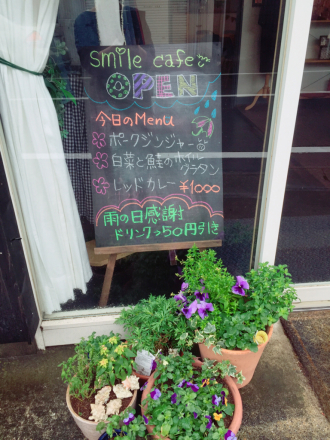 smile cafe
OPEN
今日のMenu
ポークジンジャー
白菜と鮭のホイル
グラタン
レッドカレー ¥1000
雨の日感謝
ドリンク→50円引き